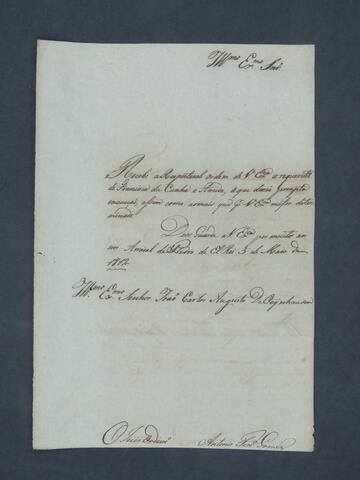 Illmo Exmo Snr.
Recebi a Respeitavel ordem de V. Exa a requerimto
de Francisco da Cunha e a que darei prompta
execução, assim como a mais que for V. Exa me for deter
minado
Deos Guarde a V. Exa por muitos an
nos Arraial de de El Rei 5 de Maio de
Illmo Exmo Senhor João Carlos Augusto D'Oeynhausen
O Juiz Ordinro Antonio